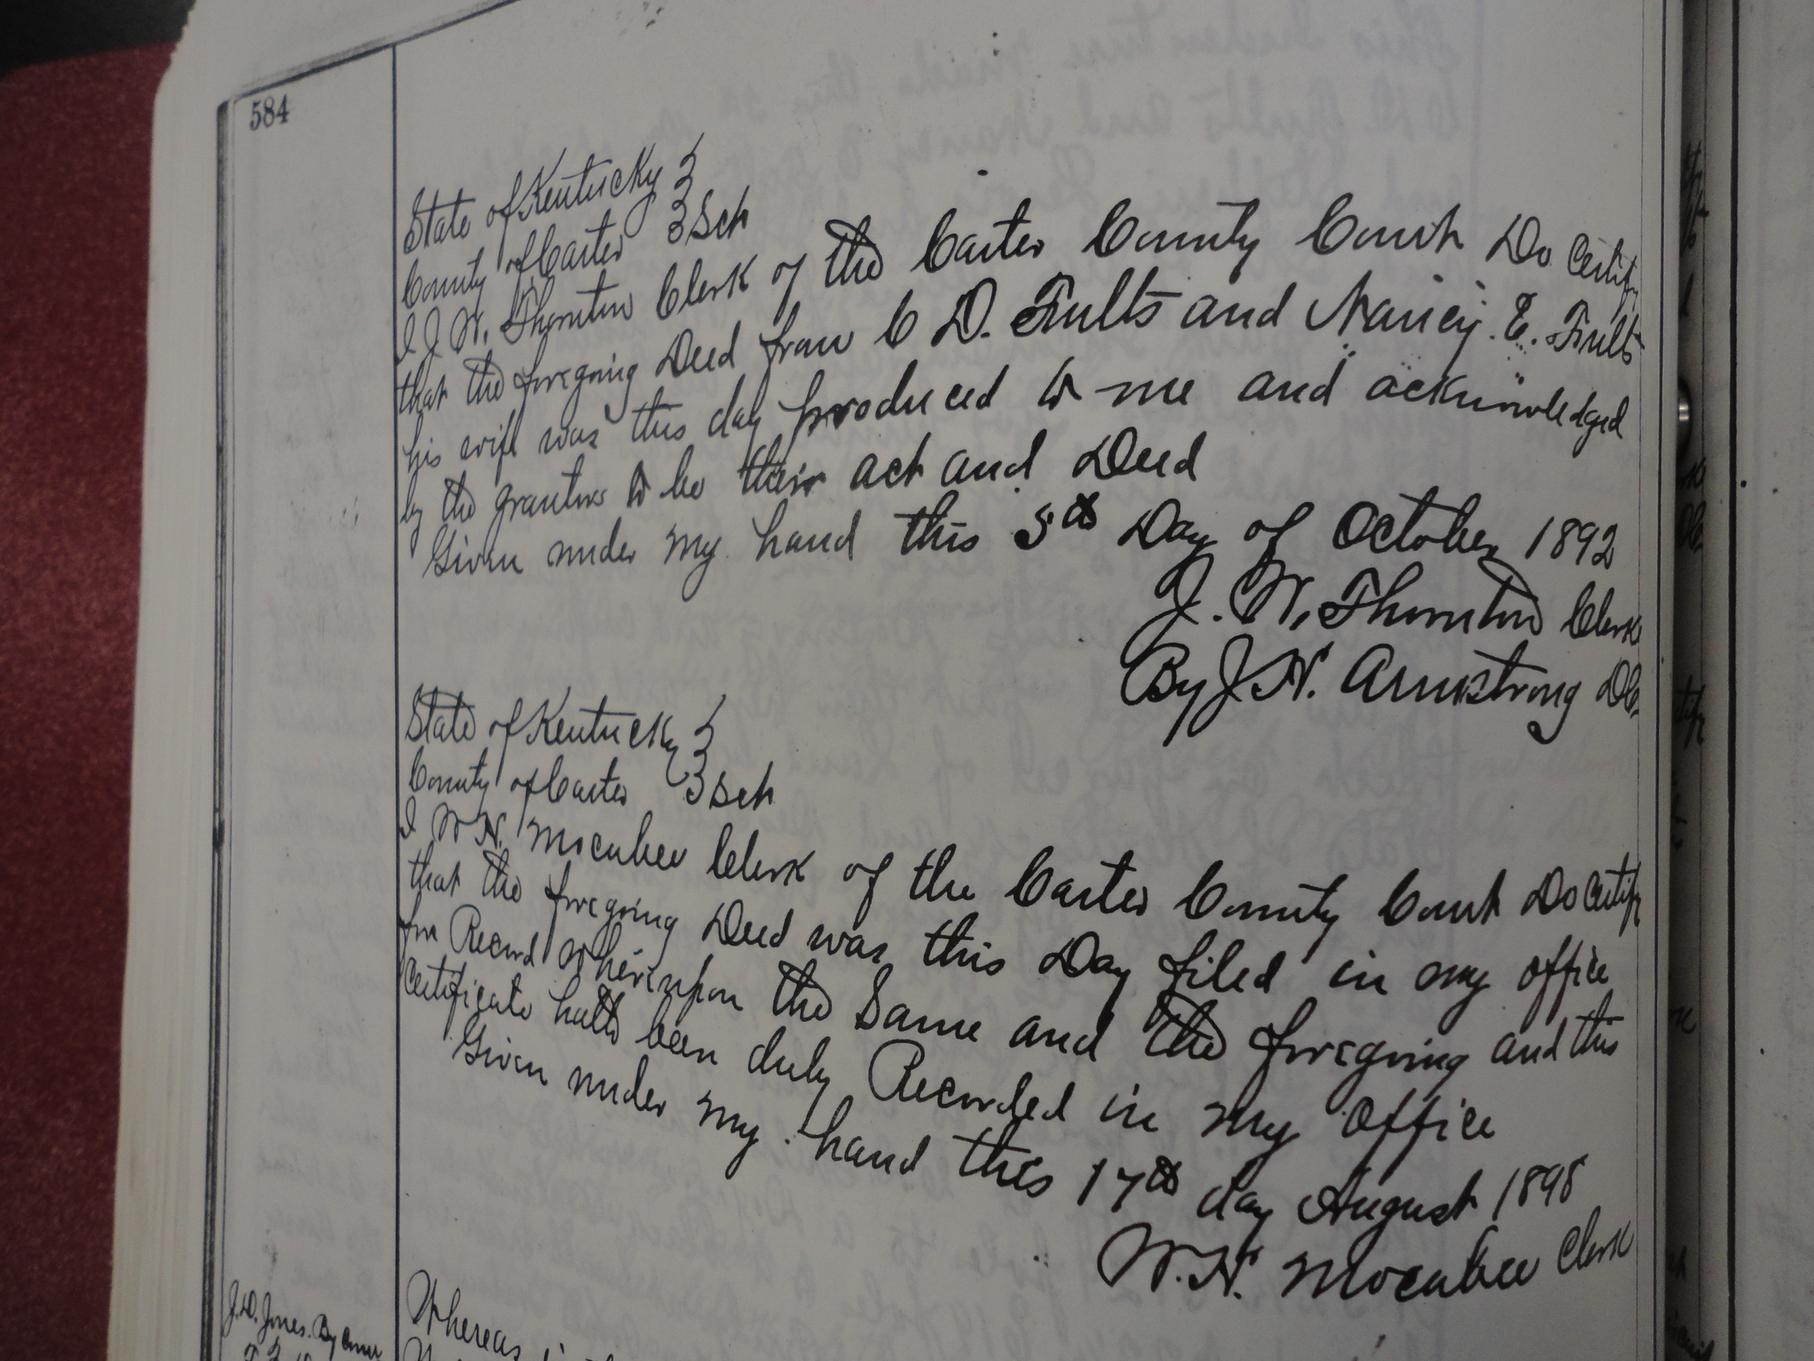 584
State of Kentucky }
County of Carter } Sct
I J. W. Thornton Clerk of the Carter County Court Do Certify
that the foregoing Deed from C D. Fults and Nancy. E. Fults
his wife was this day produced to me and acknowledged
by the grantors to be their act and Deed
Given under my hand this 5th Day of October 1892
J. W. Thornton Clerk
By J. H. Armstrong DC.
State of Kentucky }
County of Carter } Sct
I W H. Mocabee Clerk of the Carter County Court Do Certify
that the foregoing Deed was this Day filed in my office
for Record Whereupon the Same and the foregoing and this
Certificate hath been duly Recorded in my office
Given under my hand this 17th day August 1898
W. H. Mocabee Clerk
J. D. Jones. By
Whereas